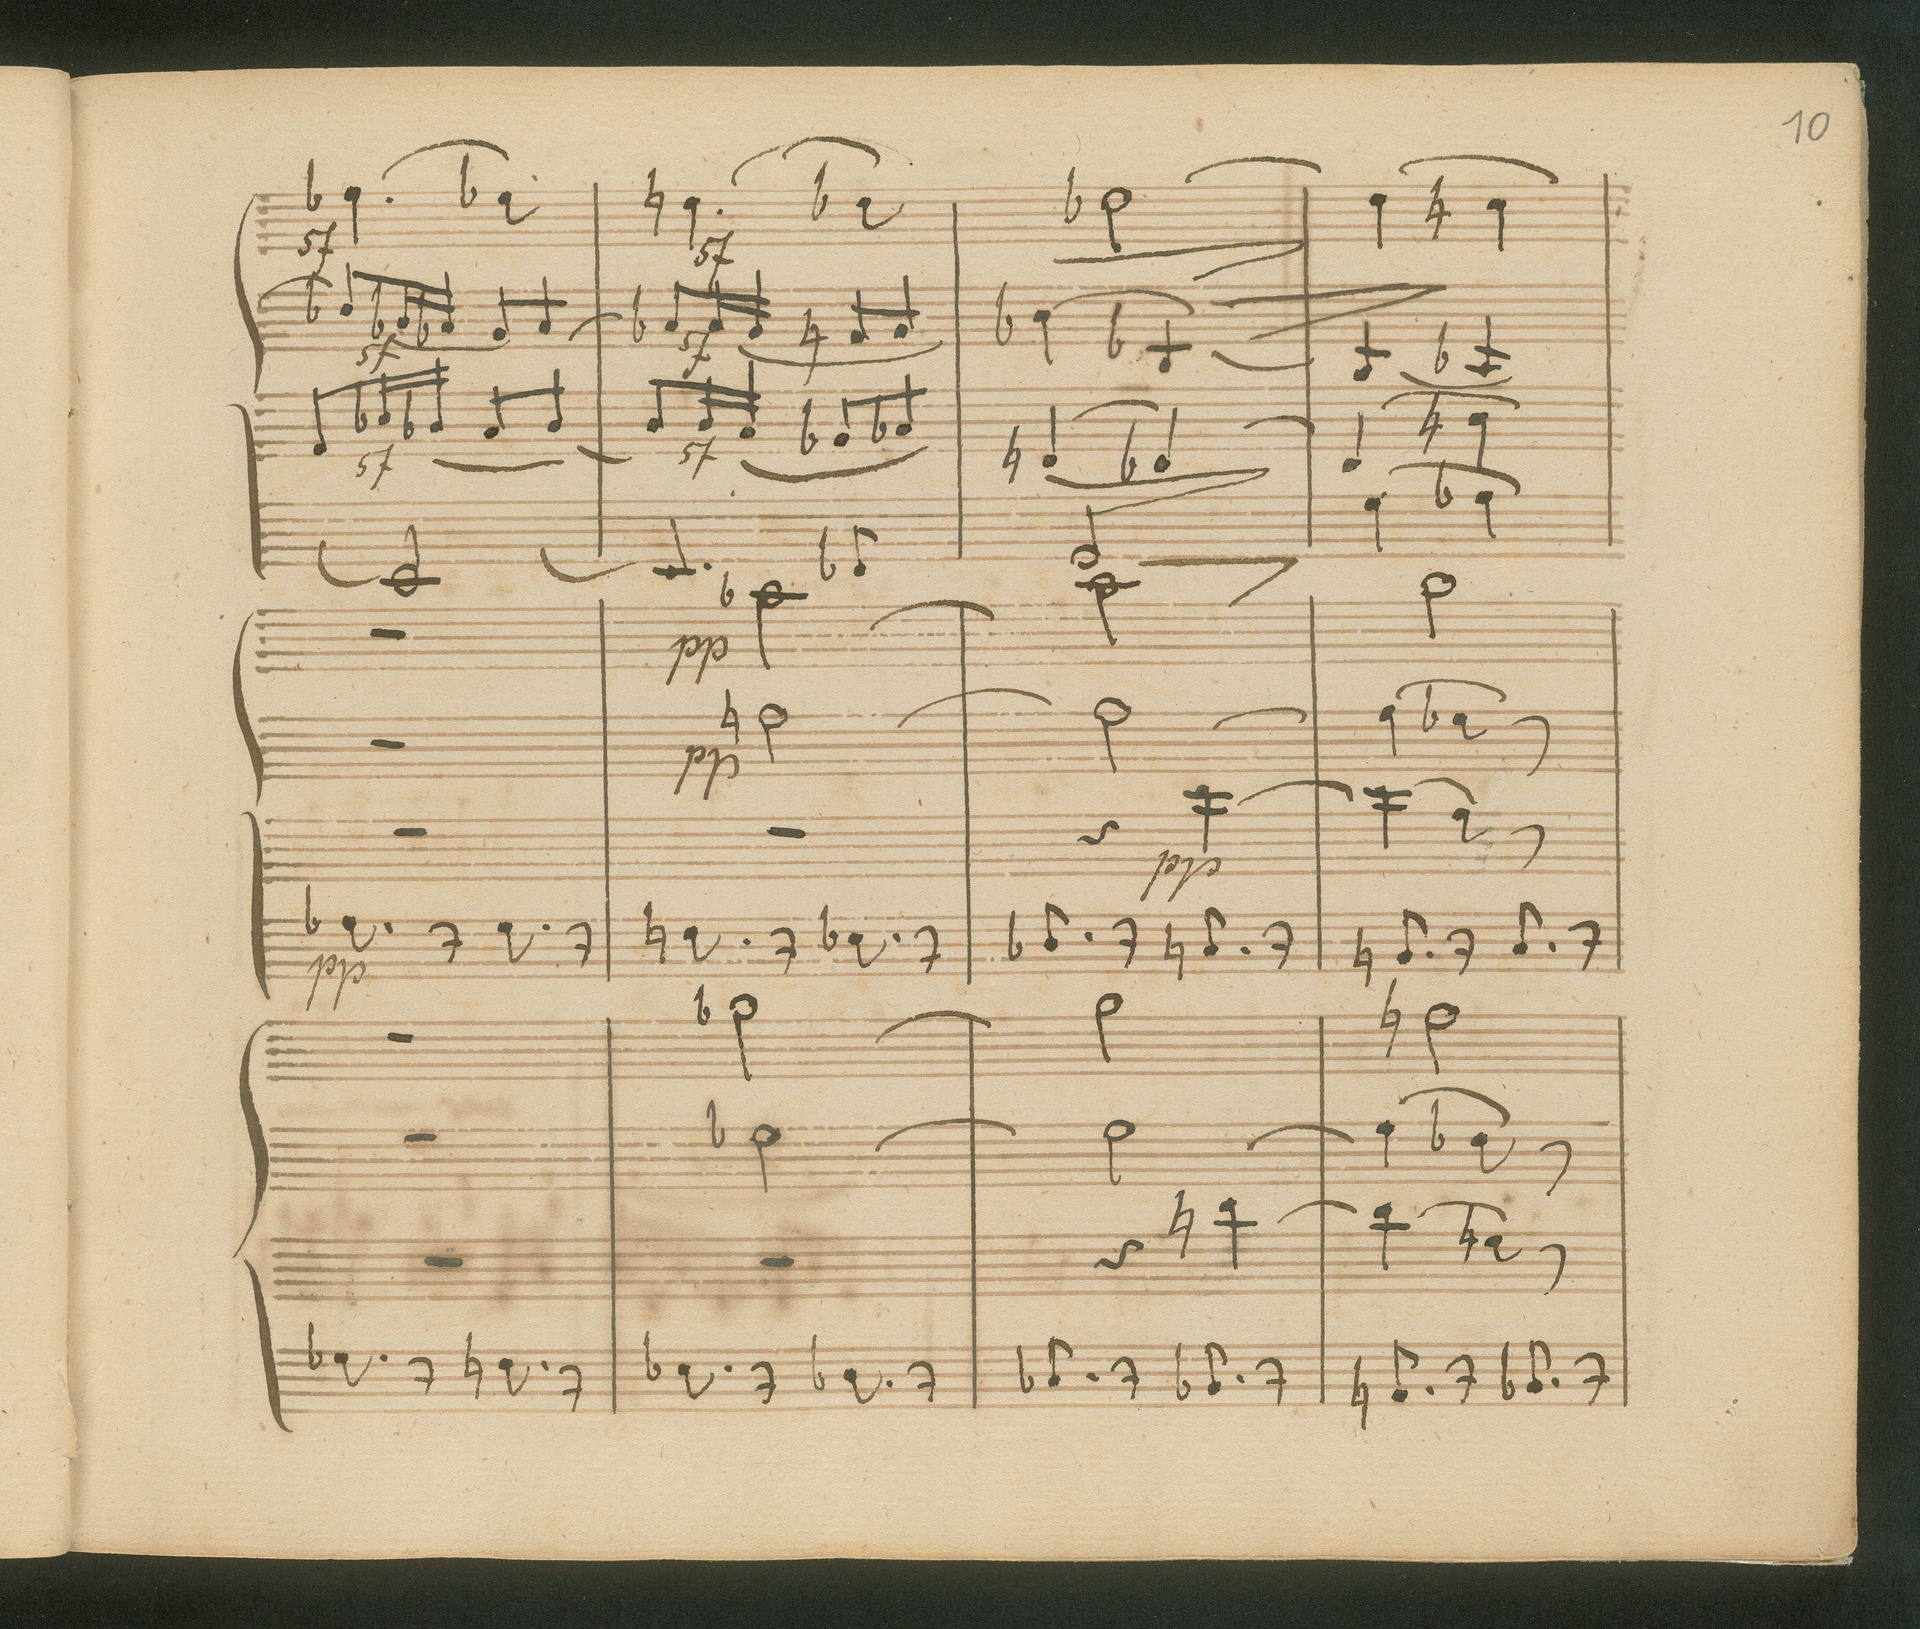 10
sf sf
sf sf
sf sf
pp
pp
pp
pp